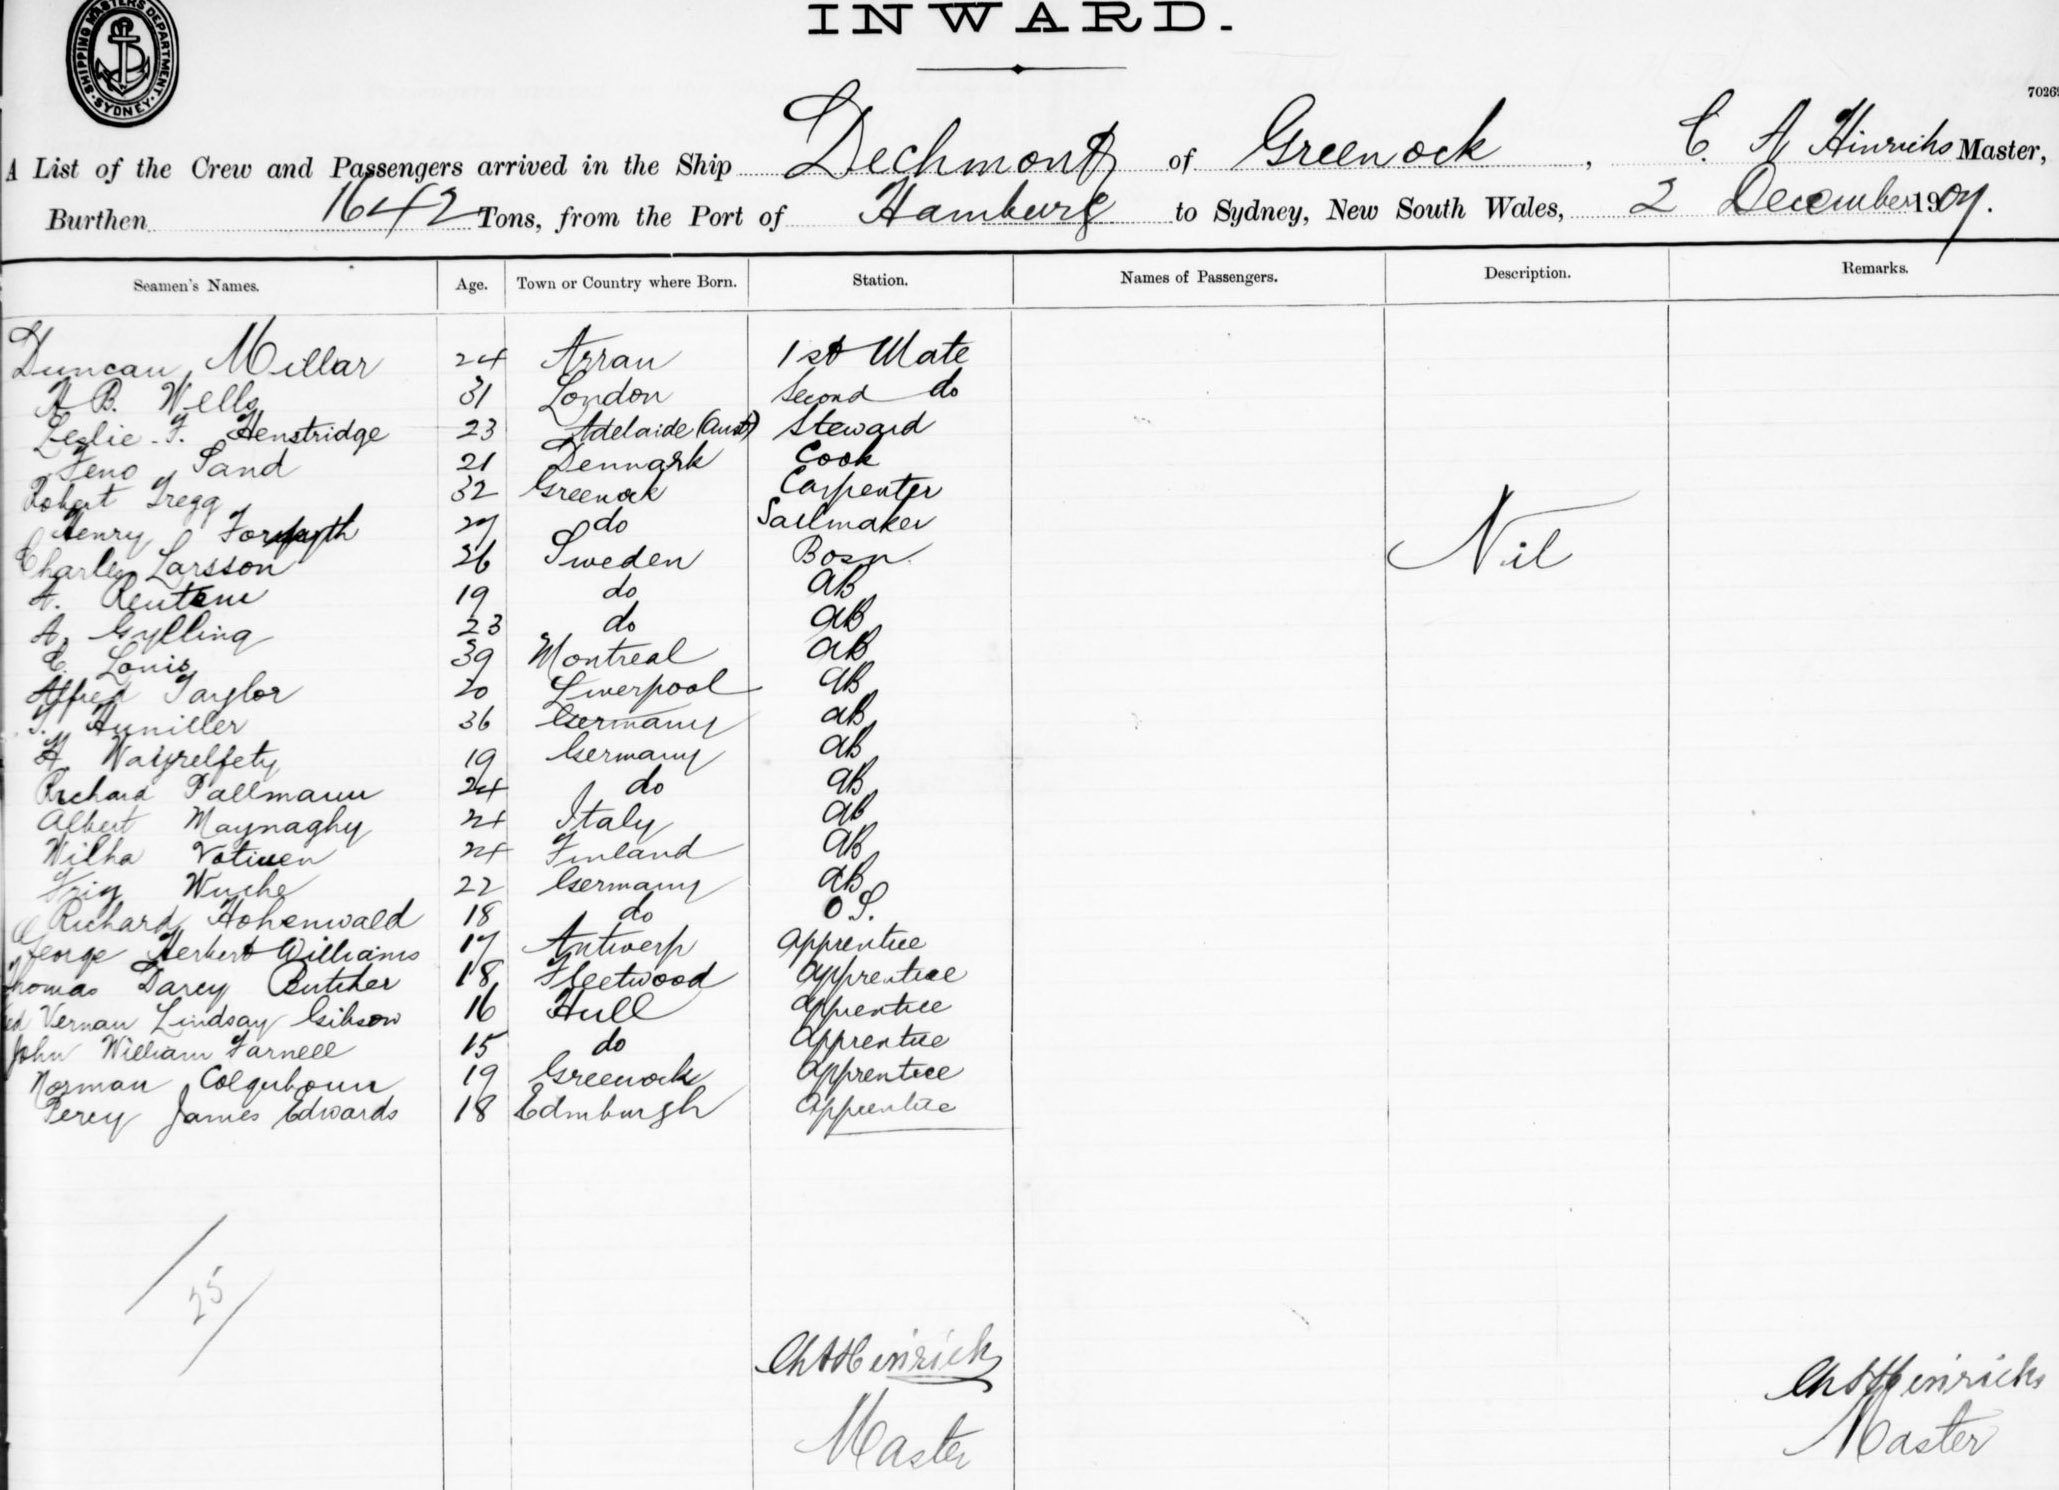 INWARD.
SHIPPING MASTERS DEPARTMENT
SYDNEY
7026
A List of the Crew and Passengers arrived in the Ship Dechmont of Greenock, C. A Hinrichs Master,
Burthen 1642 Tons, from the Port of Hamburg to Sydney, New South Wales, 2 December 1907.
Seamen's Names. Age. Town or Country where Born. Station. Names of Passengers. Description. Remarks.
Duncan Millar 24 Arran 1st Mate
H B. Wells 31 London Second do
Leslie F. Henstridge 23 Adelaide (Aust) Steward
Jeno Sand 21 Denmark Cook
Robert Gregg 32 Greenock Carpenter
Henry Forsyth 27 do Sailmaker
Charles Larsson 26 Sweden Bosn
Nil
A. 19 do AB
A. Gylling 23 do AB
C. Louis 39 Montreal AB
Alfred Taylor 20 Liverpool AB
36 Germany AB
H. 19 Germany AB
Richard Pallmann 24 do AB
Albert Maynaghy 24 Italy AB
24 Finland AB
Wuche 22 Germany AB
Richard Hohenwald 18 do O S.
George Herbert Williams 17 Antwerp apprentice
Thomas Darcy Butcher 18 Fleetwood apprentice
ed Vernan Lindsay Gibson 16 Hull apprentice
John William Farnell 15 do apprentice
Norman Colquhoun 19 Greenock apprentice
Percy James Edwards 18 Edinburgh apprentice
25
Ch A Hinrichs
Master
Ch A Hinrichs
Master